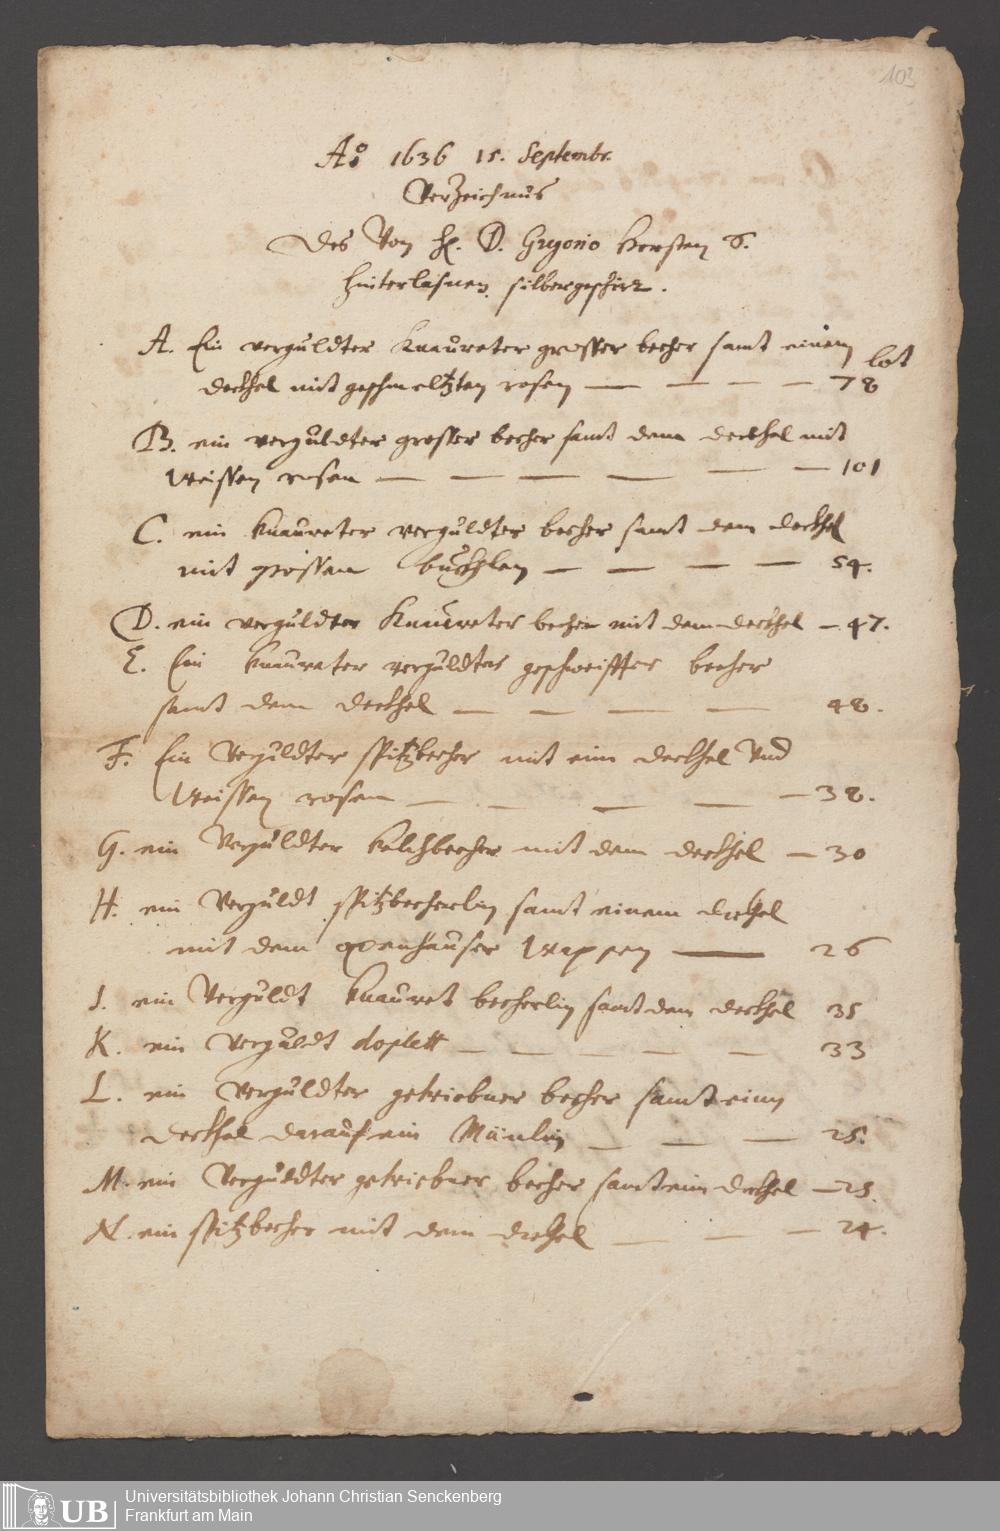 103
Ao 1636 15. Septembr.
Verzeichnus
Des Von H. D. Gregorio Horsten S.
hinterlasnen silbergeschirr.
A. Ein verguldter knaureter grosser becher samt einem
lot
deckhel mit geschmeltzten rosen — — — — 78
B. ein verguldter grosser becher samt dem deckhel mit
Weissen rosen — — — — — — 101
C. ein knaureter verguldter becher samt dem deckhel
mit grossen buckhlen — — — — 54.
D. ein verguldter knaureter becher mit dem deckhel — 47.
E. Ein knaureter verguldter geschweiffter becher
samt dem deckhel — — — — 48.
F. Ein Verguldter spitzbecher mit eim deckhel Vnd
Weissen rosen — — — — — 38.
G. ein Verguldter kelchbecher mit dem deckhel — 30
H. ein Verguldt spitzbecherlin samt einem dickhel
mit dem Wappen — 26
I. ein Verguldt knauret becherlin samt dem deckhel 35
K. ein Verguldt doplett — — — — — 33
L. ein Verguldter getriebner becher samt eim
deckhel darauf ein Mänlin — — — 25.
M. ein Verguldter getriebner becher samt eim dickhel — 25.
N. ein spitzbecher mit dem dickhel — — — 24.
UB
Universitätsbibliothek Johann Christian Senckenberg
Frankfurt am Main